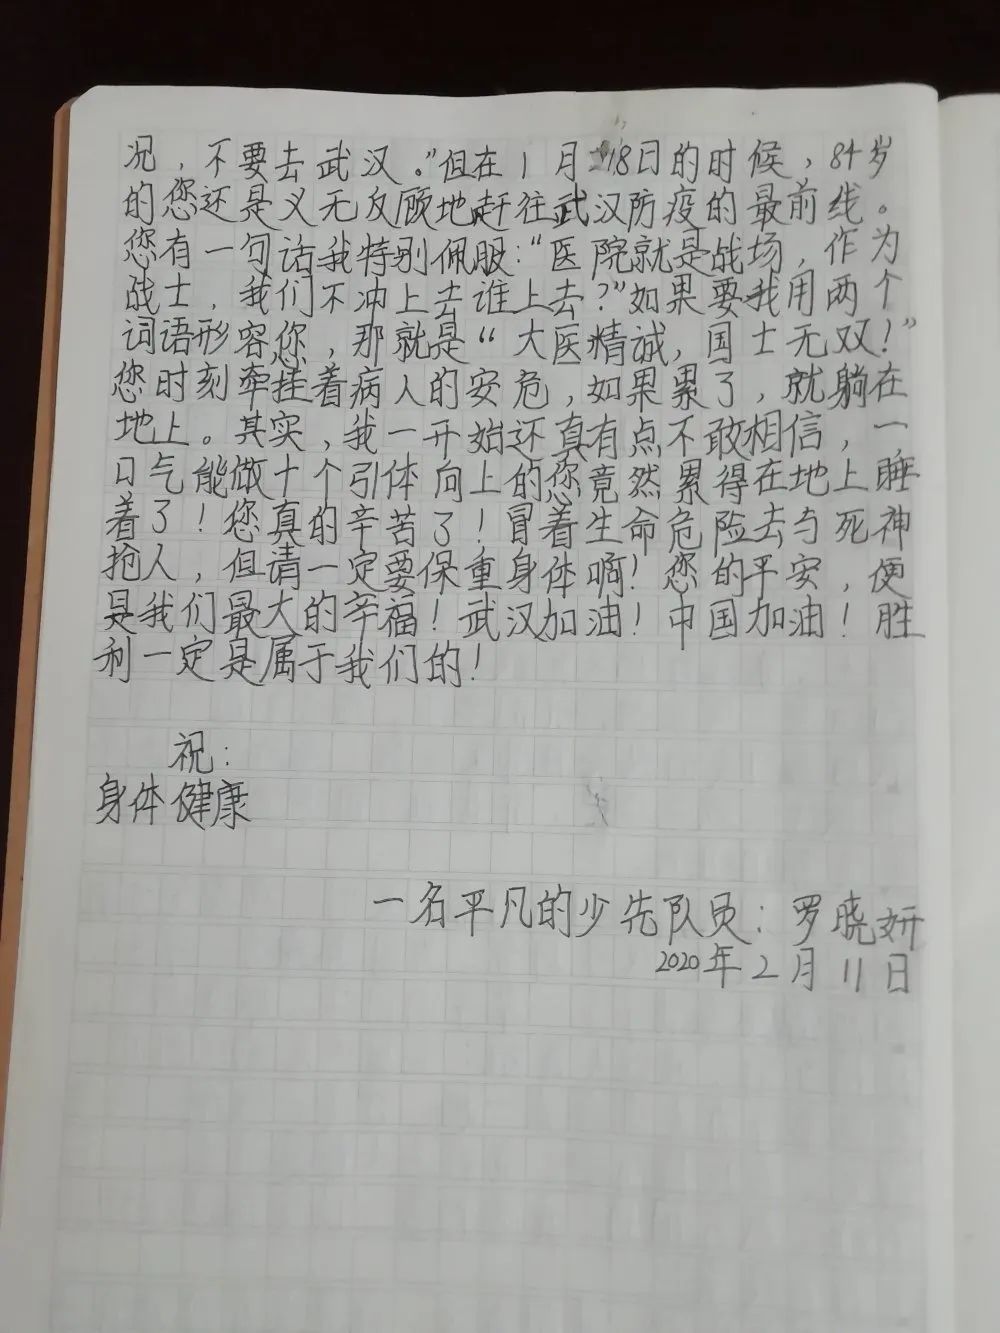 况，不要去武汉。”但在1月18日的时候，84岁
的您还是义无反顾地赶往武汉防疫的最前线。
您有一句话我特别佩服：“医院就是战场，作为
战士，我们不冲上去谁上去？”如果要我用两个
词语形容您，那就是“大医精诚，国士无双！”
您时刻牵挂着病人的安危，如果累了，就躺在
地上。其实，我一开始还真有点不敢相信，一
口气能做十个引体向上的您竟然累得在地上睡
着了！您真的辛苦了！冒着生命危险去与死神
抢人，但请一定要保重身体啊！您的平安，便
是我们最大的辛福！武汉加油！中国加油！胜
利一定是属于我们的！
祝：
身体健康
一名平凡的少先队员：罗晓妍
2020年2月11日